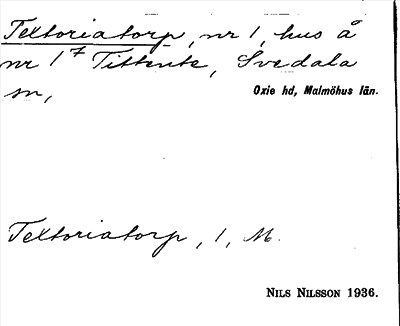 Textoriatorp, nr 1, hus å
nr 1⁷ Tittente, Svedala
sn,
Oxie hd, Malmöhus län.
Textoriatorp, 1, M.
NILS NILSSON 1936.